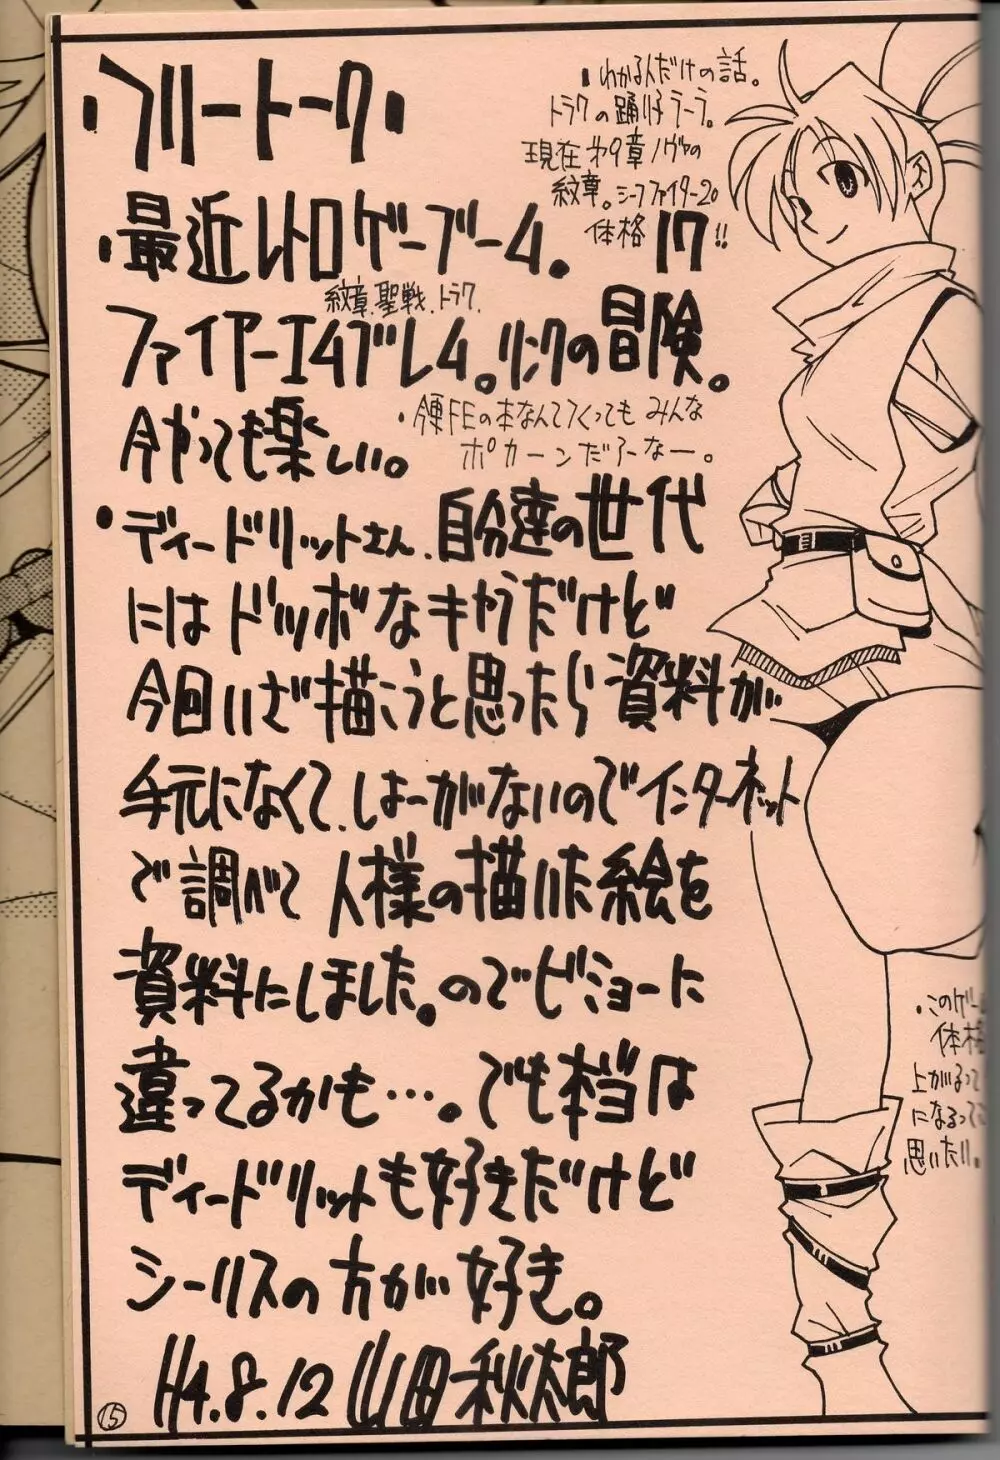 ・フリートーク・
・わかる人だけの話。
トラクの踊り子ラーラ。
現在 第9章ノヴァの
紋章。シーフファイター20
体格 17!!
・最近レトロゲーブーム。
紋章.聖戦.トラク.
ファイアーエムブレム。リンクの冒険。
今やっても楽しい。
・今東FEの本なんてつくっても みんな
ポカーンだろーなー。
・ディードリットさん、自分達の世代
にはドツボなキャラだけど
今回いざ描こうと思ったら資料が
手元になくて、しょーがないのでインターネット
で調べて人様の描いた絵を
資料にしました。のでビミョーに
違ってるかも…。でも本当は
ディードリットも好きだけど
シーリスの方が好き。
H4.8.12 山田秋太郎
・このゲー
体格
上がるって
になるって
思いたい。
15